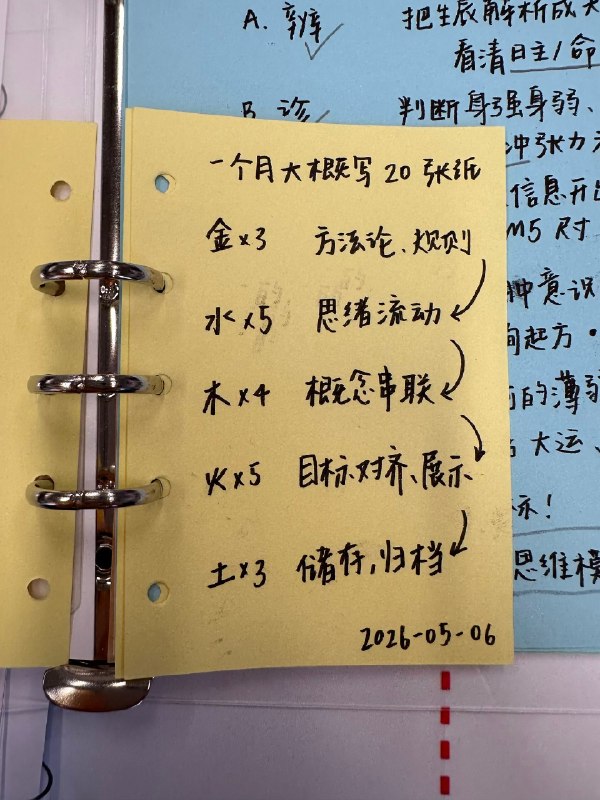 A. 辨
把生辰解析成
看清日主/命
B. 诊
判断身强身弱、
冲张力
信息开
M5 尺寸
一个月大概写 20 张纸
金×3 方法论、规则
水×5 思绪流动
木×4 概念串联
火×5 目标对齐、展示
土×3 储存,归档
2026-05-06
种意识
起方·
的薄弱
大运、
示!
思维模